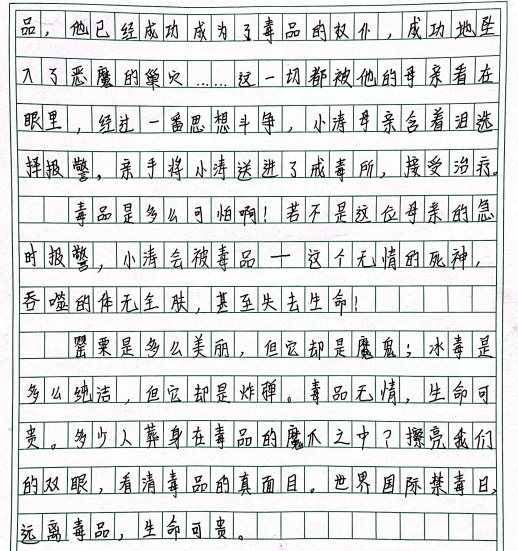 品，他已经成功成为了毒品的奴仆，成功地坠
入了恶魔的巢穴……这一切都被他的母亲看在
眼里，经过一番思想斗争，小涛母亲含着泪选
择报警，亲手将小涛送进了戒毒所，接受治疗。
毒品是多么可怕啊！若不是这位母亲的急
时报警，小涛会被毒品一这个无情的死神，
吞噬的体无全肤，甚至失去生命！
罂粟是多么美丽，但它却是魔鬼；冰毒是
多么纯洁，但它却是炸弹。毒品无情，生命可
贵。多少人葬身在毒品的魔爪之中？擦亮我们
的双眼，看清毒品的真面目。世界国际禁毒日，
远离毒品，生命可贵。